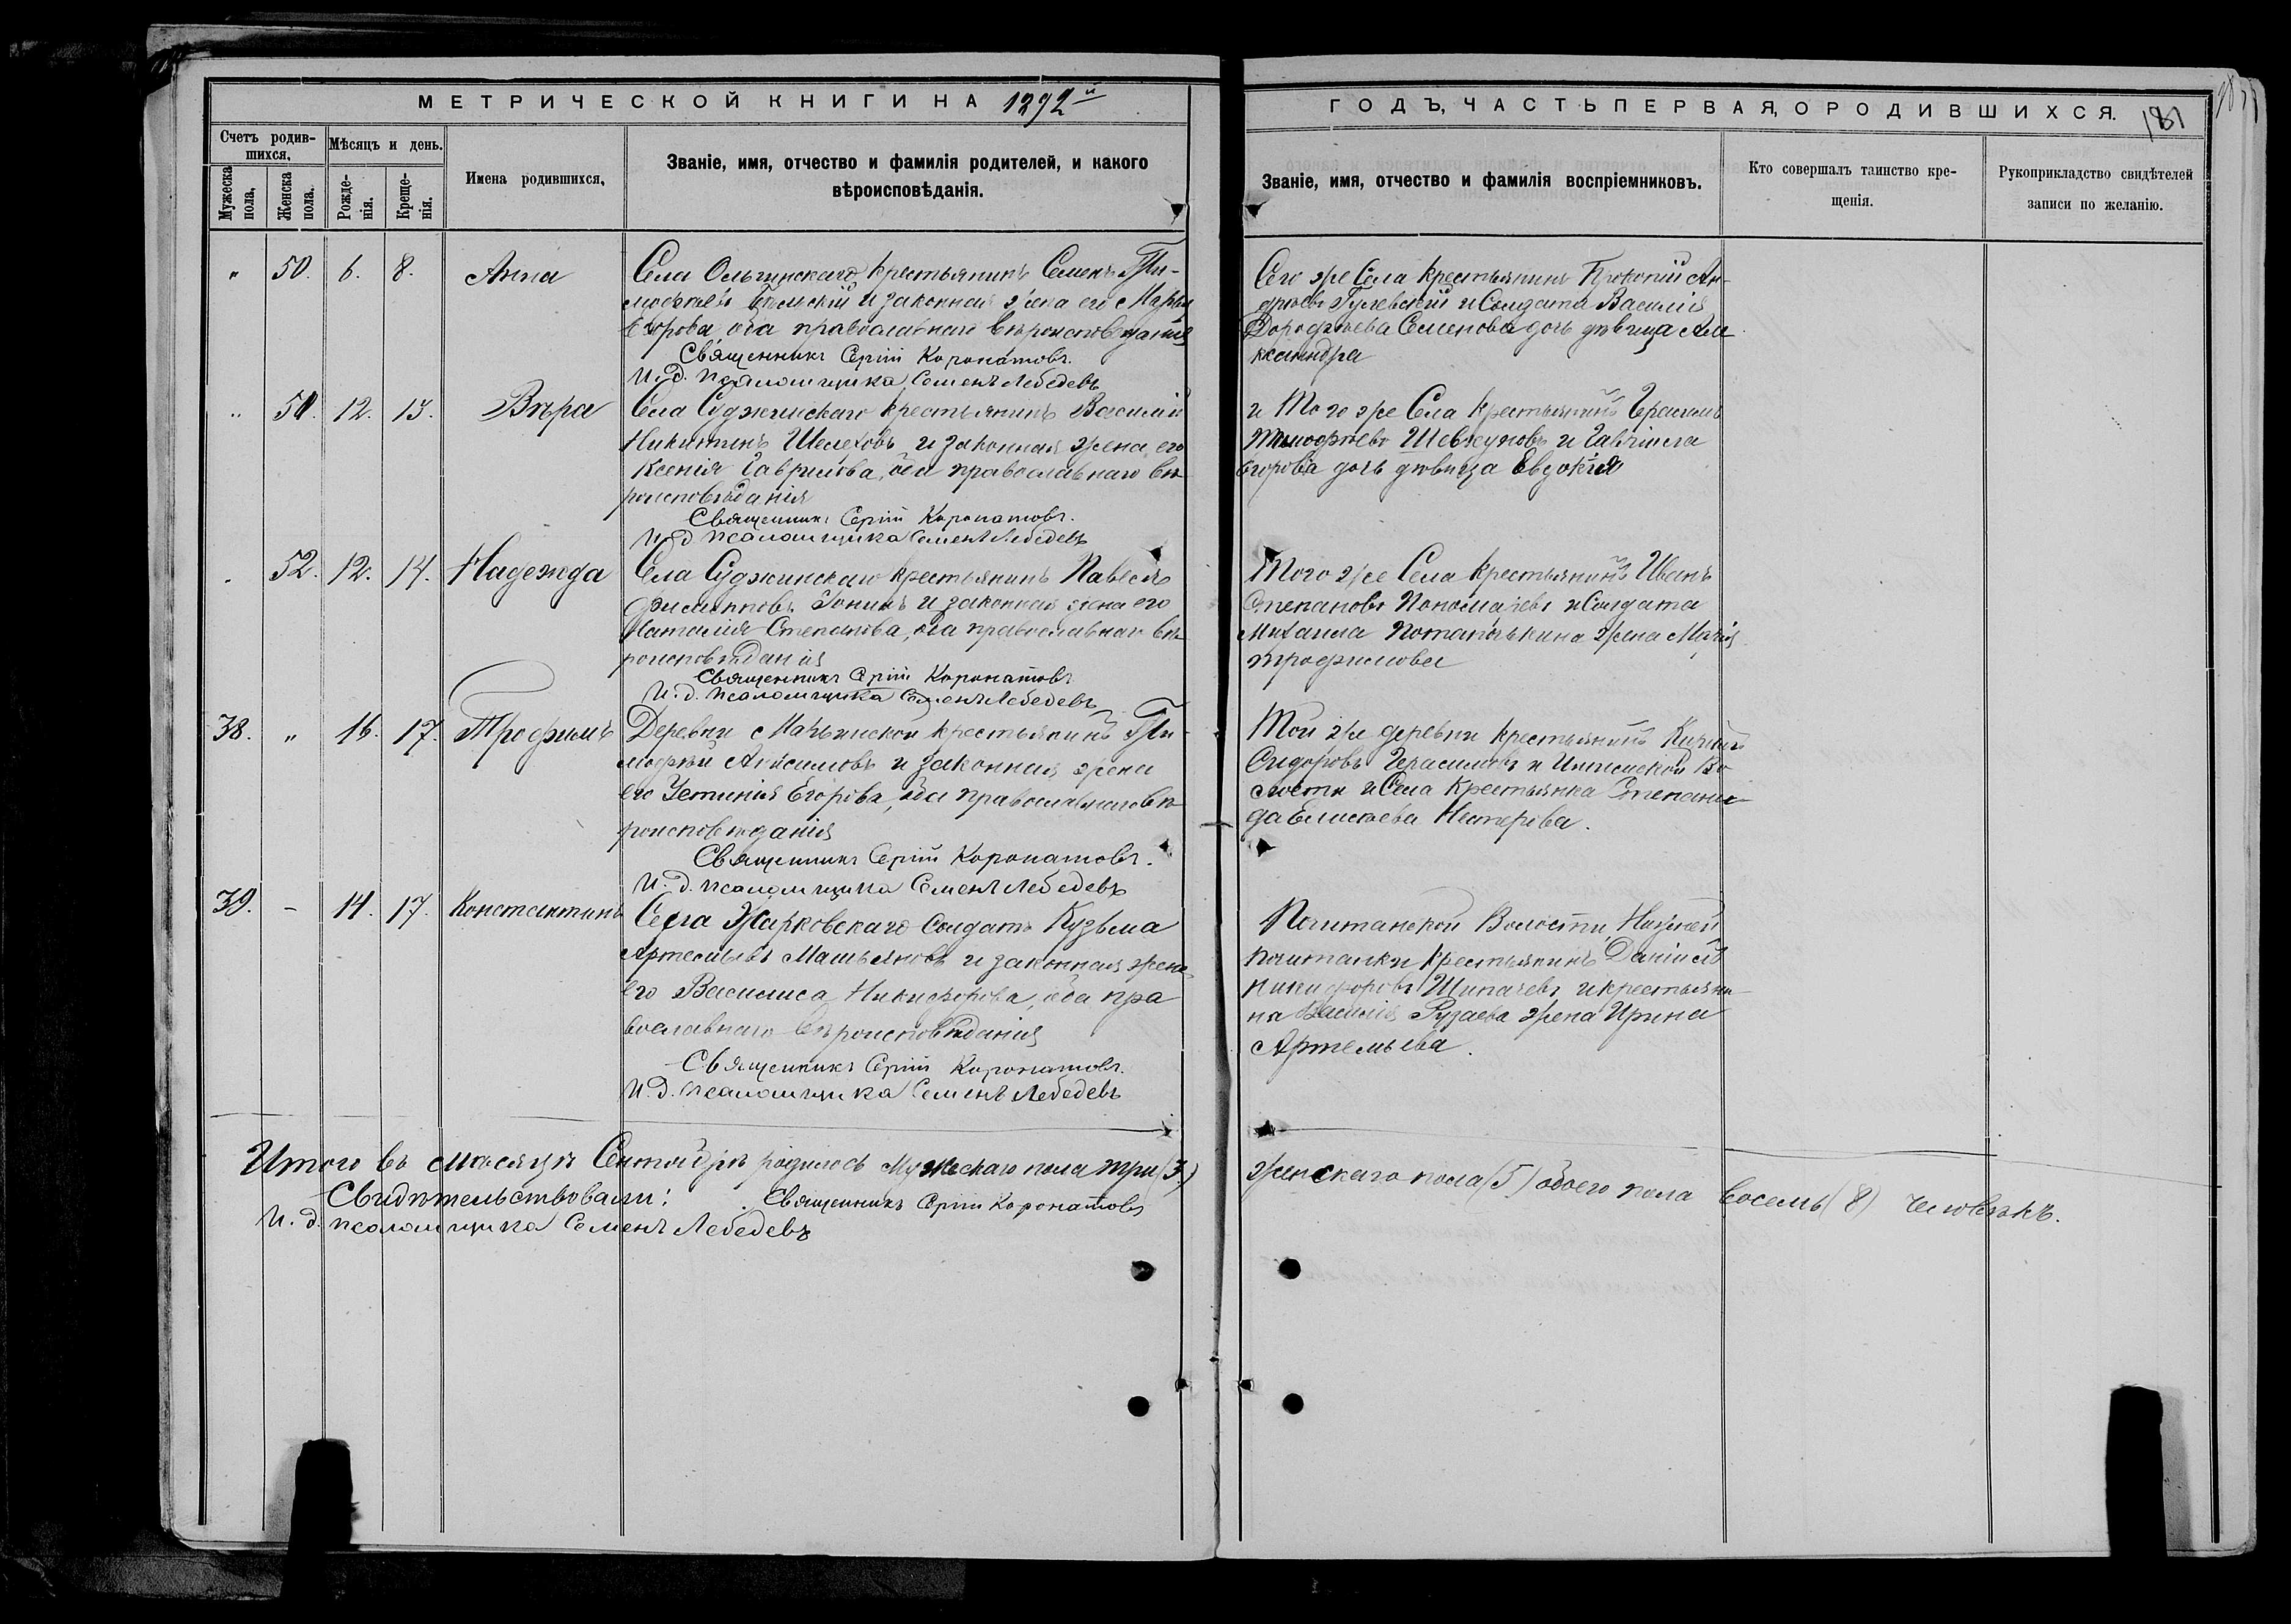 МЕТРИЧЕСКОЙ КНИГИ НА 1892й
Счетъ родив-
шихся,
Мужеска
пола,
Женска
пола.
Мѣсяцъ и день.
Рожде-
нія.
Креще-
нія.
Имена родившихся,
Званіе, имя, отчество и фамилія родителей, и какого
вѣроисповѣданія.
" 50. 6. 8. Анна
Села Ольгинскаго крестьянинъ Семенъ Ти-
мофѣевъ и законная жена его Марья
Егорова, оба православнаго вѣроисповѣданія
Священникъ Сергій Коронатовъ.
И. д. псаломщика Семенъ Лебедевъ
" 51. 12. 13. Вѣра
Села Суджинскаго крестьянинъ Василій
Никитинъ Шелеховъ и законная жена его
Ксенія Гаврилова, оба православнаго вѣ-
роисповѣданія
Священникъ Сергій Коронатовъ.
И. д. псаломщика Семенъ Лебедевъ
52. 12. 14. Надежда
Села Суджинскаго крестьянинъ Павелъ
Филипповъ Зонинъ и законная жена его
Наталія Степанова, оба православнаго вѣ-
роисповѣданія
Священникъ Сергій Коронатовъ
И. д. псаломщика Семенъ Лебедевъ
38. " 16. 17. Трофимъ
Деревни крестьянинъ Ти-
мофѣй Анисимовъ и законная жена
его Устинія Егорова, оба православнаго вѣ-
роисповѣданія
Священникъ Сергій Коронатовъ.
И. д. псаломщика Семенъ Лебедевъ
39. - 14. 17. Константинъ
Села Жарковскаго солдатъ Кузьма
Артемьевъ Машьяновъ и законная жена
его Василиса Никифорова, оба пра
вославнаго вѣроисповѣданія
Священникъ Сергій Коронатовъ.
И. д. псаломщика Семенъ Лебедевъ
Итого въ мѣсяцѣ Сентябрѣ родилось мужескаго пола три (3.)
Свидѣтельствовали: Священникъ Сергій Коронатовъ
И. д. псаломщика Семенъ Лебедевъ
ГОДЪ, ЧАСТЬ ПЕРВАЯ, О РОДИВШИХСЯ. 181
Званіе, имя, отчество и фамилія воспріемниковъ.
Кто совершалъ таинство кре-
щенія.
Рукоприкладство свидѣтелей
записи по желанію.
Сего же Села крестьянинъ Прокопій Ан-
дреевъ Гулевскій и Солдата Василія
Дорофѣева Семенова дочь дѣвица Але
ксандра
и Того же Села крестьянинъ Герасимъ
Тимофѣевъ Шевкуновъ и Гавріила
Егорова дочь дѣвица Евдокія
Того же Села крестьянинъ Иванъ
Степановъ Пономаревъ и Солдата
Михаила Потапочкина жена Марія
Трофимова
Той же деревни крестьянинъ
Сидоровъ Герасимовъ и Во
лости и Села крестьянка Степани-
да Елисѣева Нестерова.
Почитанской Волости, Нижней
почитанки крестьянинъ Даніилъ
Никифоровъ Шипачевъ и крестьяни
на Василія Рузаева жена Ирина
Артемьева.
женскаго пола (5) обоего пола восемь (8) человѣкъ.